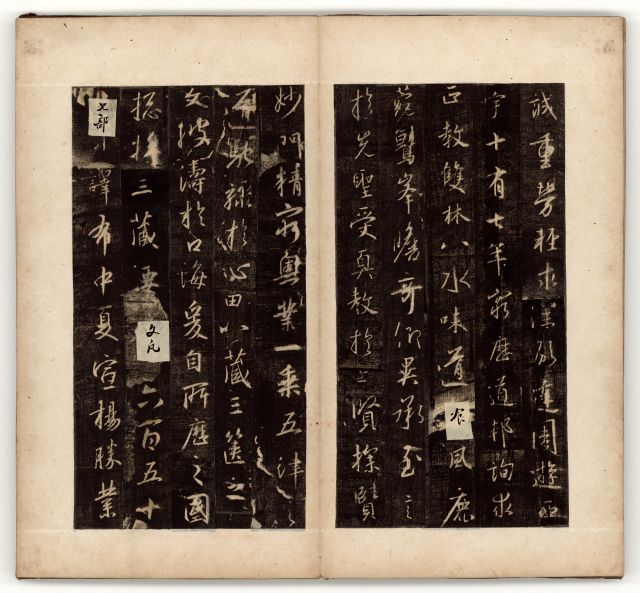 誠重勞輕求深願達周遊西
宇十有七年窮歷道邦詢求
正教雙林八水味道飡風鹿
菀鷲峯瞻奇仰異承至言
於先聖受真教於上賢探賾
妙門精窮奧業一乘五律之
道馳驟於心田八藏三篋之
文波濤於口海爰自所歷之國
捴將三藏要文凡六百五十
七部譯布中夏宣楊勝業